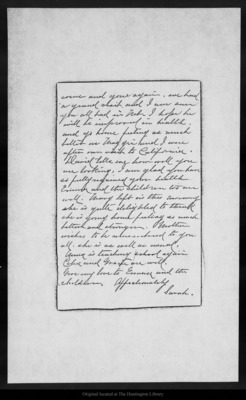 come and gone again. we had
a grand visit and I am sure
you all had in Feb. I hope he
will be improved in health
and go home feeling as much
better as Maggie and I were
after our visit to California.
David tells me how well you
are looking. I am glad you have
so fully regained your health.
Emma and the children too are
well. Mag left us this morning
she is quite delighted to think
she is going home feeling so much
better and stronger. Mother
wishes to be remembered to you
all. she is as well as usual.
Anna is teaching school again
Celia and Grace are well.
Give my love to Emma and the
children. Affectionately
Sarah.
Original located at The Huntington Library